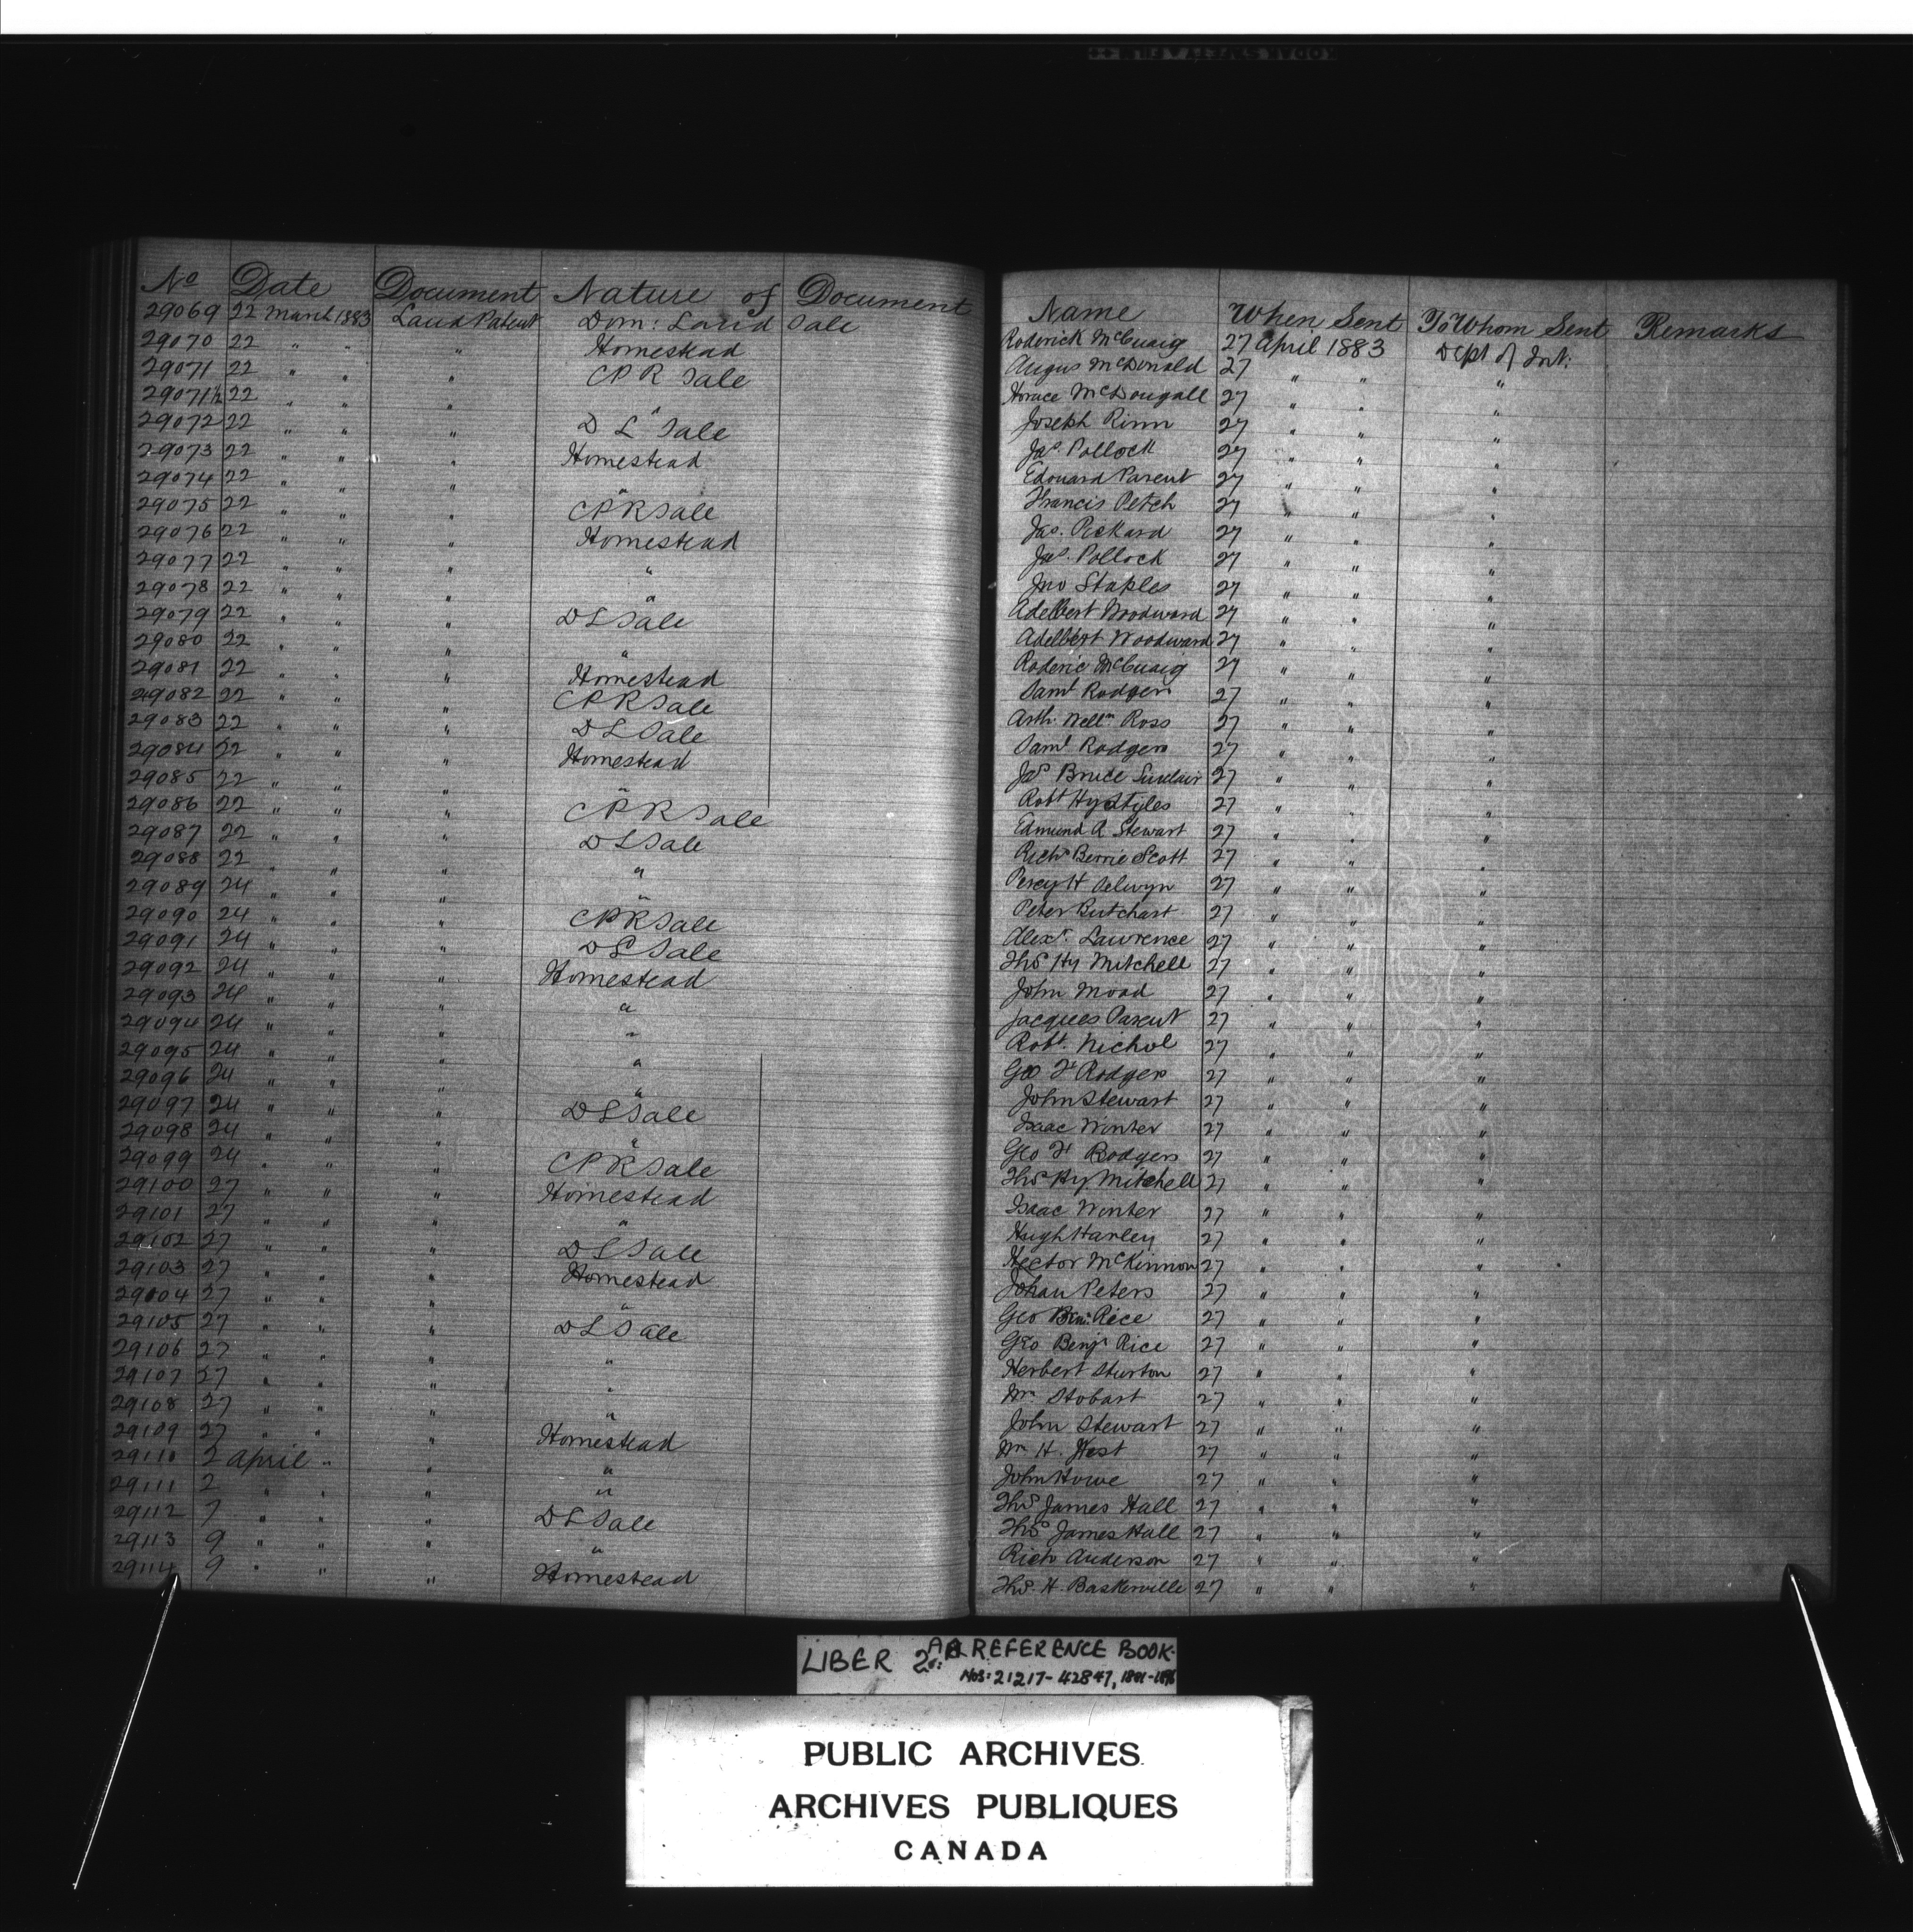 No Date Document Nature of Document
29069 22 March 1883 Land Patent Dom: Land Sale
29070 22 " " " Homestead
29071 22 " " " CPR Sale
29071½ 22 " " " "
29072 22 " " " D L Sale
29073 22 " " " Homestead
29074 22 " " " "
29075 22 " " " CPR Sale
29076 22 " " " Homestead
29077 22 " " " "
29078 22 " " " "
29079 22 " " " DL Sale
29080 22 " " " "
29081 22 " " " Homestead
29082 22 " " " CPR Sale
29083 22 " " " DL Sale
29084 22 " " " Homestead
29085 22 " " " "
29086 22 " " " CPR Sale
29087 22 " " " DL Sale
29088 22 " " " "
29089 24 " " " "
29090 24 " " " CPR Sale
29091 24 " " " DL Sale
29092 24 " " " Homestead
29093 24 " " " "
29094 24 " " " "
29095 24 " " " "
29096 24 " " " "
29097 24 " " " DL Sale
29098 24 " " " "
29099 24 " " " CPR Sale
29100 27 " " " Homestead
29101 27 " " " "
29102 27 " " " DL Sale
29103 27 " " " Homestead
29104 27 " " " "
29105 27 " " " DL Sale
29106 27 " " " "
29107 27 " " " "
29108 27 " " " "
29109 27 " " " Homestead
29110 2 April " " "
29111 2 " " " "
29112 7 " " " DL Sale
29113 9 " " " "
29114 9 " " " Homestead
Name When Sent To Whom Sent Remarks
Roderick McCuaig 27 April 1883 Dept of Int:
Angus McDonald 27 " " "
Horace McDougall 27 " " "
Joseph Rinn 27 " " "
Jas. Pollock 27 " " "
Edouard Parent 27 " " "
Francis Petch 27 " " "
Jas. Pickard 27 " " "
Jas. Pollock 27 " " "
Jno Staples 27 " " "
Adelbert Woodward 27 " " "
Adelbert Woodward 27 " " "
Roderic McCuaig 27 " " "
Saml Rodgers 27 " " "
Arth. Welln Ross 27 " " "
Saml Rodgers 27 " " "
Jas Bruce Sinclair 27 " " "
Robt Hy Styles 27 " " "
Edmund A Stewart 27 " " "
Richd Berrie Scott 27 " " "
Percy H Selwyn 27 " " "
Peter Butchart 27 " " "
Alexr. Lawrence 27 " " "
Thos Hy Mitchell 27 " " "
John Moad 27 " " "
Jacques Parent 27 " " "
Robt. Nichol 27 " " "
Geo F Rodgers 27 " " "
John Stewart 27 " " "
Isaac Winter 27 " " "
Geo F Rodgers 27 " " "
Thos Hy Mitchell 27 " " "
Isaac Winter 27 " " "
Hugh Harley 27 " " "
Hector McKinnon 27 " " "
Johan Peters 27 " " "
Geo Benj. Rice 27 " " "
Geo Benjn Rice 27 " " "
Herbert Sturton 27 " " "
Wm Stobart 27 " " "
John Stewart 27 " " "
Wm H. West 27 " " "
John Howe 27 " " "
Thos James Hall 27 " " "
Thos James Hall 27 " " "
Richd Anderson 27 " " "
Thos. H. Baskerville 27 " " "
LIBER 2A REFERENCE BOOK.
Nos: 21217-42847, 1881-1896
PUBLIC ARCHIVES
ARCHIVES PUBLIQUES
CANADA